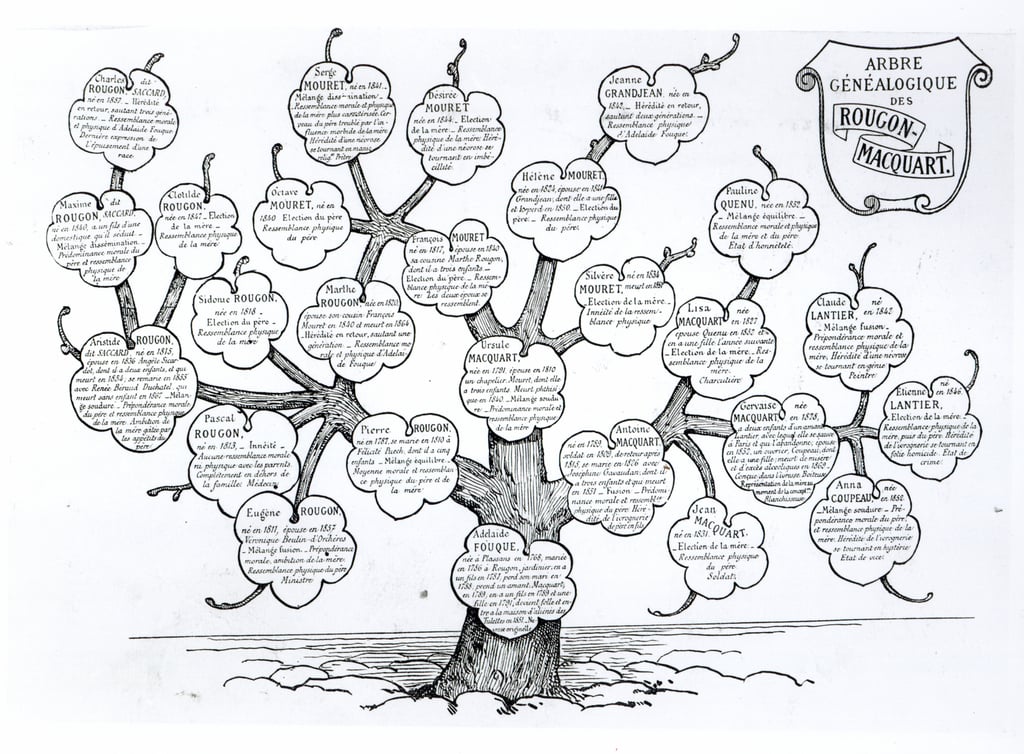 ARBRE
GÉNÉALOGIQUE
DES
ROUGON-
MACQUART.
Charles dit
ROUGON, SACCARD,
né en 1857. Hérédité
en retour, sautant trois géné-
rations. Ressemblance morale
et physique d'Adelaïde Fouque.
Dernière expression de
l'épuisement d'une
race.
Serge
MOURET, né en 1841.
Mélange dissémination.
Ressemblance morale et physique
de la mère plus caractérisée. Cer-
veau du père troublé par l'in-
fluence morbide de la mère
Hérédité d'une névrose
se tournant en
Prêtre
Désirée
MOURET
née en 1844. Election
de la mère. Ressemblance
physique de la mère. Héré-
dité d'une névrose se
tournant en imbé-
cillité.
Jeanne
GRANDJEAN, née en
1842. Hérédité en retour,
sautant deux générations.
Ressemblance physique
d'Adelaïde Fouque.
Maxime dit
ROUGON, SACCARD,
né en 1840, a un fils d'une
domestique qu'il séduit.
Mélange dissémination.
Prédominance morale du
père et ressemblance
physique de
la mère.
Clotilde
ROUGON.
née en 1847. Election
de la mère.
Ressemblance physique
de la mère.
Octave
MOURET, né en
1840 Election du père
Ressemblance physique
du père
François MOURET
né en 1817, épouse en 1840
sa cousine Marthe Rougon,
dont il a trois enfants.
Election du père. Ressem-
blance physique de la mè-
re. Les deux époux se
ressemblent.
Hélène MOURET,
née en 1824, épouse en 1841
Grandjean, dont elle a une fille
et le perd en 1850. Election du
père. Ressemblance physique
du père.
Pauline
QUENU, née en 1852
Mélange équilibre.
Ressemblance morale et physique
de la mère et du père.
Etat d'honnêteté.
Sidonie ROUGON,
née en 1818.
Election du père.
Ressemblance physique
de la mère
Marthe
ROUGON, née en 1820
épouse son cousin François
Mouret en 1840 et meurt en 1864
Hérédité en retour, sautant une
génération. Ressemblance mo-
rale et physique d'Adélaï-
de Fouque.
Silvère né en 1834
MOURET, meurt en 1851
Election de la mère.
Innéité de la ressem-
blance physique
Lisa
MACQUART née en 1827
épouse Quenu en 1852 et
en a une fille l'année suivante
Election de la mère. Res-
semblance physique de la
mère.
Charcutière
Claude né
LANTIER, en 1842
Mélange fusion.
Prépondérance morale et
ressemblance physique de la
mère. Hérédité d'une névrose
se tournant en génie
Peintre
Etienne né en 1846.
LANTIER,
Election de la mère.
Ressemblance physique de la
mère, puis du père. Hérédité
de l'ivrognerie se tournant en
folie homicide. Etat de
crime.
Aristide ROUGON,
dit SACCARD, né en 1815,
épouse en 1836 Angèle Sicar-
dot, dont il a deux enfants, et qui
meurt en 1854, se remarie en 1855
avec Renée Béraud Duchatel, qui
meurt sans enfant en 1867 Mélan-
ge soudure. Prépondérance morale
du père et ressemblance physique
de la mère. Ambition de
la mère gâtée par
les appétits du
père.
Ursule
MACQUART,
née en 1791, épouse en 1810
un chapelier, Mouret, dont elle
a trois enfants. Meurt phthisi-
que en 1840. Mélange soudu-
re. Prédominance morale et
ressemblance physique
de la mère
Pascal
ROUGON,
né en 1813, Innéité.
Aucune ressemblance morale
ni physique avec les parents.
Complètement en dehors de
la famille. Médecin
Pierre ROUGON,
né en 1787, se marie en 1810 à
Félicité Puech, dont il a cinq
enfants. Mélange équilibre.
Moyenne morale et ressemblan-
ce physique du père et de
la mère.
Antoine
MACQUART,
né en 1789,
soldat en 1809, de retour après
1815, se marie en 1826 avec
Joséphine Gavaudan, dont il
a trois enfants et qui meurt
en 1851. Fusion. Prédomi-
nance morale et ressemblance
physique du père. Héré-
dité de l'ivrognerie
de père en fils
Gervaise née
MACQUART en 1828,
a deux enfants d'un amant
Lantier, avec lequel elle se sauve
à Paris et qui l'abandonne; épouse
en 1852, un ouvrier, Coupeau, dont
elle a une fille; meurt de misère
et d'excès alcooliques en 1869.
Conçue dans l'ivresse. Boiteuse
Représentation de la mère au
moment de la concept.
Blanchisseuse.
Eugène ROUGON,
né en 1811, épouse en 1857
Véronique Beulin-d'Orchères
Mélange fusion. Prépondérance
morale, ambition de la mère.
Ressemblance physique du père
Ministre
Adelaïde
FOUQUE,
née à Plassans en 1768, mariée
en 1786 à Rougon, jardinier, en a
un fils en 1787, perd son mari en
1788, prend un amant, Macquart,
en 1789, en a un fils en 1789 et une
fille en 1791, devient folle et en-
tre à la maison d'aliénés des
Tulettes en 1851. Né-
vrose originelle.
Jean
MACQUART.
né en 1831.
Election de la mère.
Ressemblance physique
du père
Soldat.
Anna née
COUPEAU en 1852.
Mélange soudure. Pré-
pondérance morale du père
et ressemblance physique de la
mère. Hérédité de l'ivrognerie
se tournant en hystérie
Etat de vice.